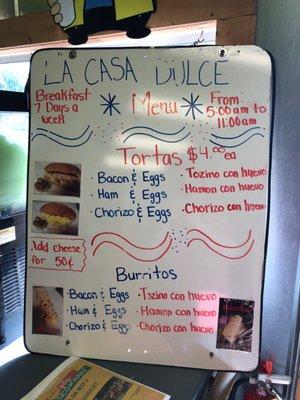 LA CASA DULCE
Breakfast
7 Days a
week
Menu
From
5:00am to
11:00am
Tortas $4.00 ea
• Bacon & Eggs
• Ham & Eggs
• Chorizo & Eggs
• Tozino con huevo
• Hamon con huevo
• Chorizo con huevo
Add cheese
for 50¢
Burritos
• Bacon & Eggs
• Ham & Eggs
• Chorizo & Eggs
• Tozino con huevo
• Hamon con huevo
• Chorizo con huevo